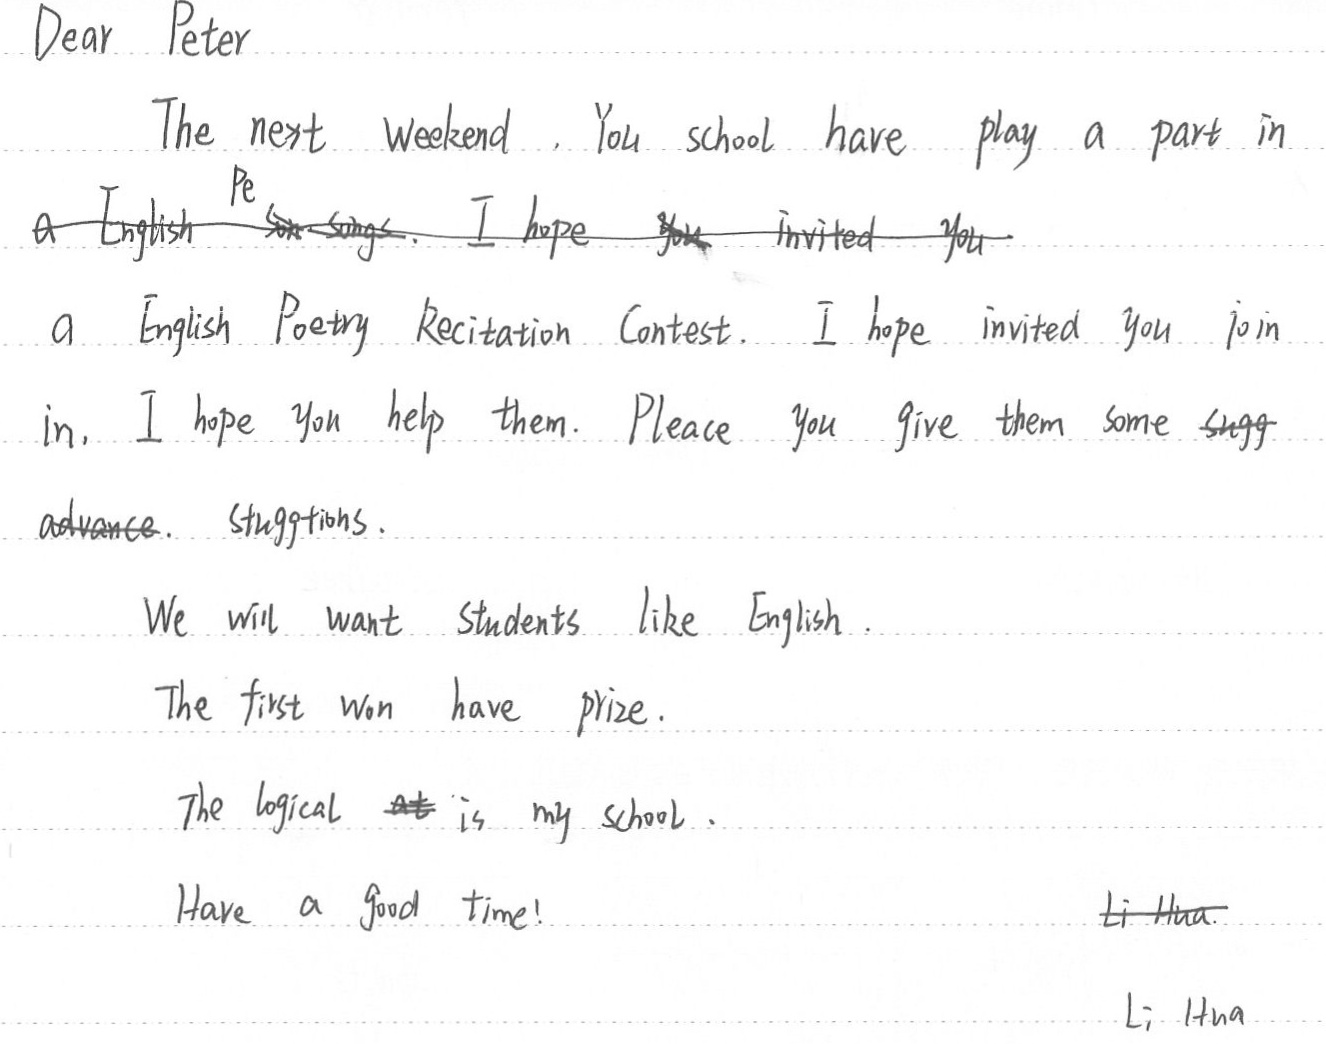 Dear Peter
The next weekend, You school have play a part in
a English Pe songs. I hope you invited you
a English Poetry Recitation Contest. I hope invited you join
in, I hope you help them. Pleace you give them some sugg
advance. stuggtions.
We will want students like English.
The first won have prize.
The logical at is my school.
Have a good time! Li Hua.
Li Hua